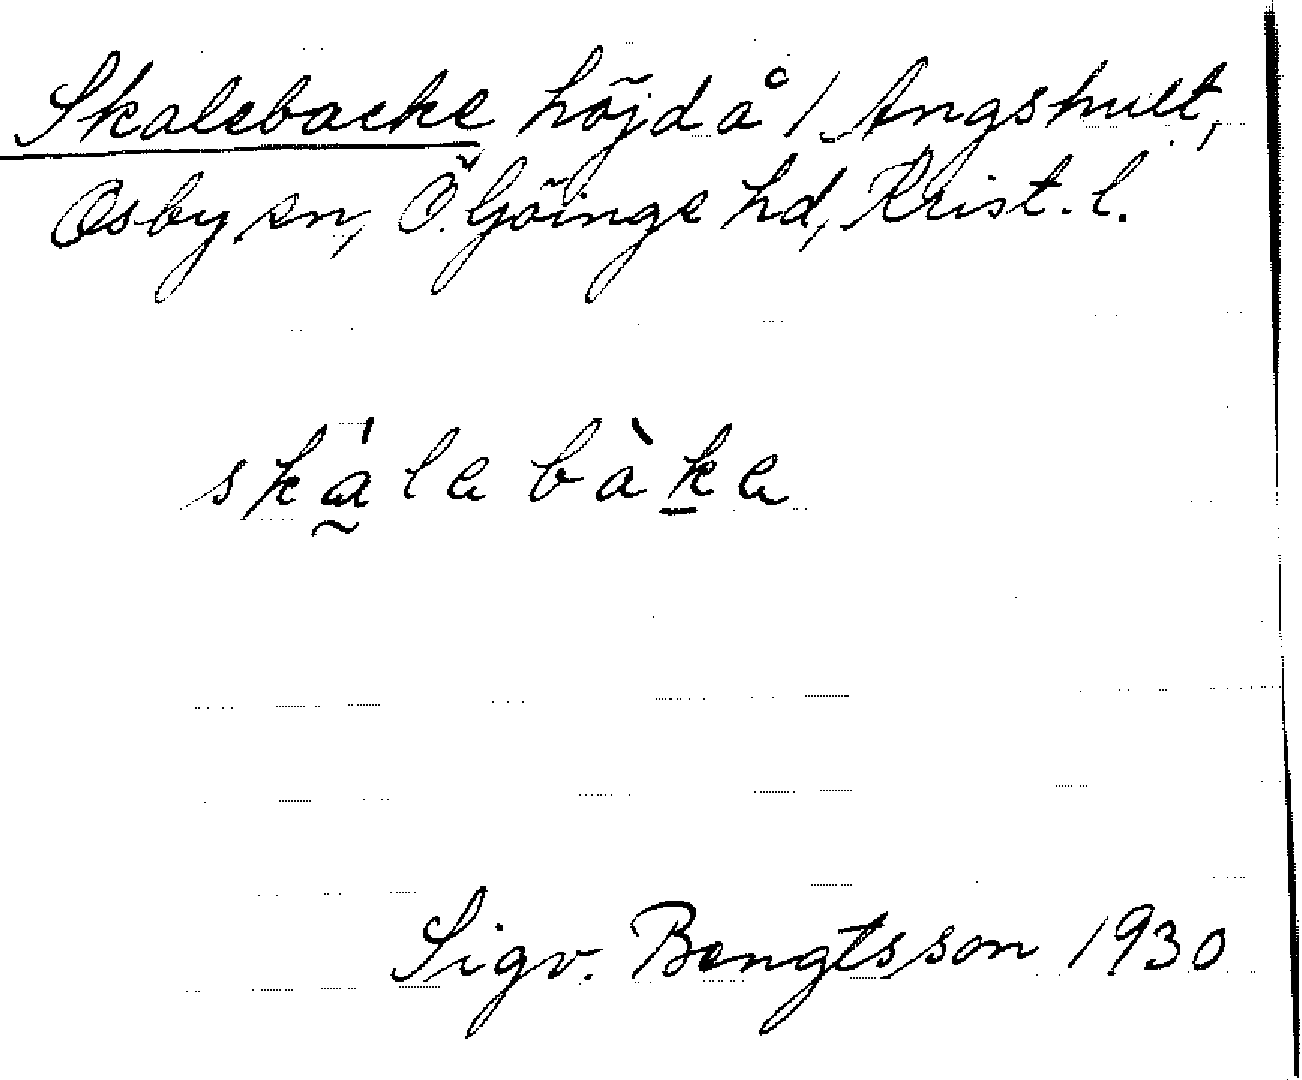 Skalebacke höjd å 1 Angshult,
Osby sn, Ö. Göinge hd, Krist. l.
skálebàke
Sigv. Bengtsson 1930